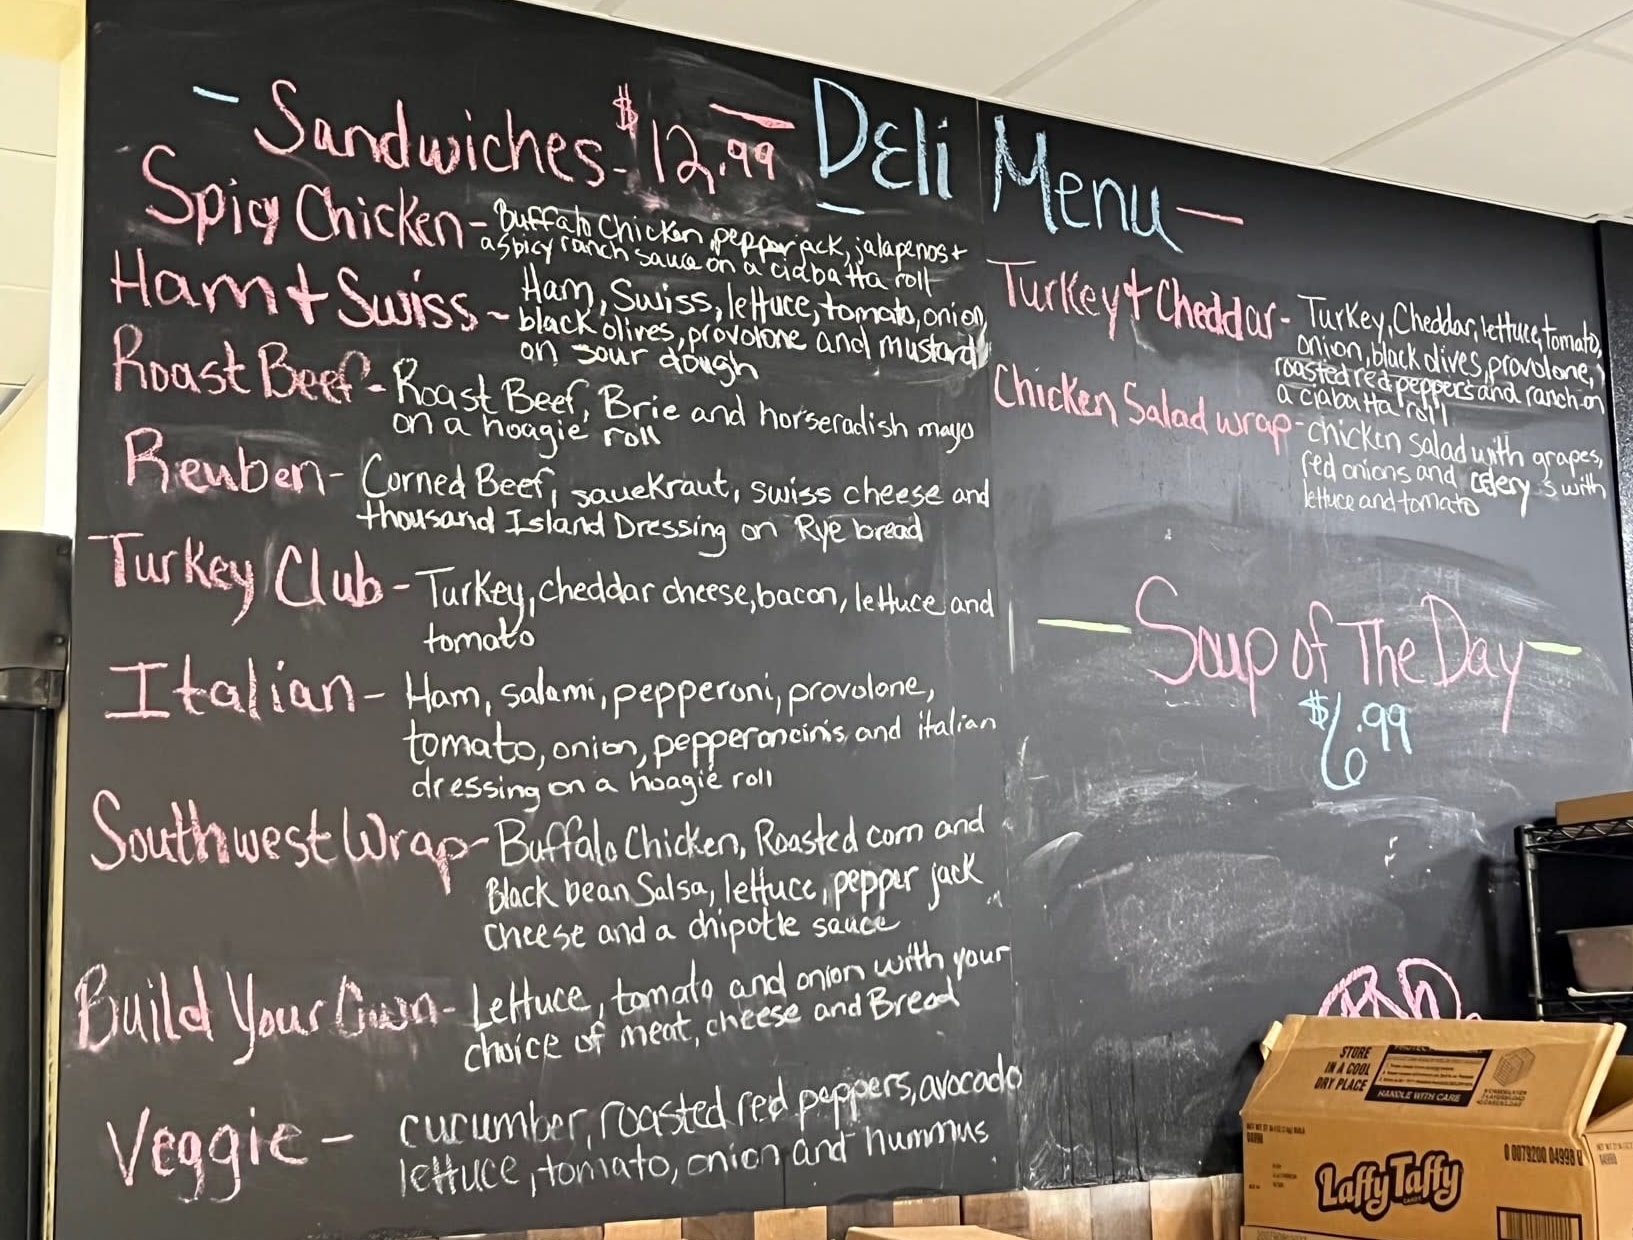 - Sandwiches - $12.99
Deli Menu -
Spicy Chicken - Buffalo Chicken, pepperjack, jalapenos +
a spicy ranch sauce on a ciabatta roll
Ham + Swiss - Ham, Swiss, lettuce, tomato, onion,
black olives, provolone and mustard
on sour dough
Roast Beef - Roast Beef, Brie and horseradish mayo
on a hoagie roll
Reuben - Corned Beef, sauekraut, swiss cheese and
thousand Island Dressing on Rye bread
Turkey Club - Turkey, cheddar cheese, bacon, lettuce and
tomato
Italian - Ham, salami, pepperoni, provolone,
tomato, onion, pepperoncinis, and italian
dressing on a hoagie roll
Southwest Wrap - Buffalo Chicken, Roasted corn and
Black bean Salsa, lettuce, pepper jack
cheese and a chipotle sauce
Build Your Own - Lettuce, tomato and onion with your
choice of meat, cheese and Bread
Veggie - cucumber, roasted red peppers, avocado
lettuce, tomato, onion and hummus
Turkey + Cheddar - Turkey, Cheddar, lettuce, tomato,
onion, black olives, provolone,
roasted red peppers and ranch on
a ciabatta roll
Chicken Salad wrap - chicken salad with grapes,
red onions and celery s with
lettuce and tomato
- Soup of The Day -
$6.99
STORE
IN A COOL
DRY PLACE
HANDLE WITH CARE
0 0079200 04998
Laffy Taffy